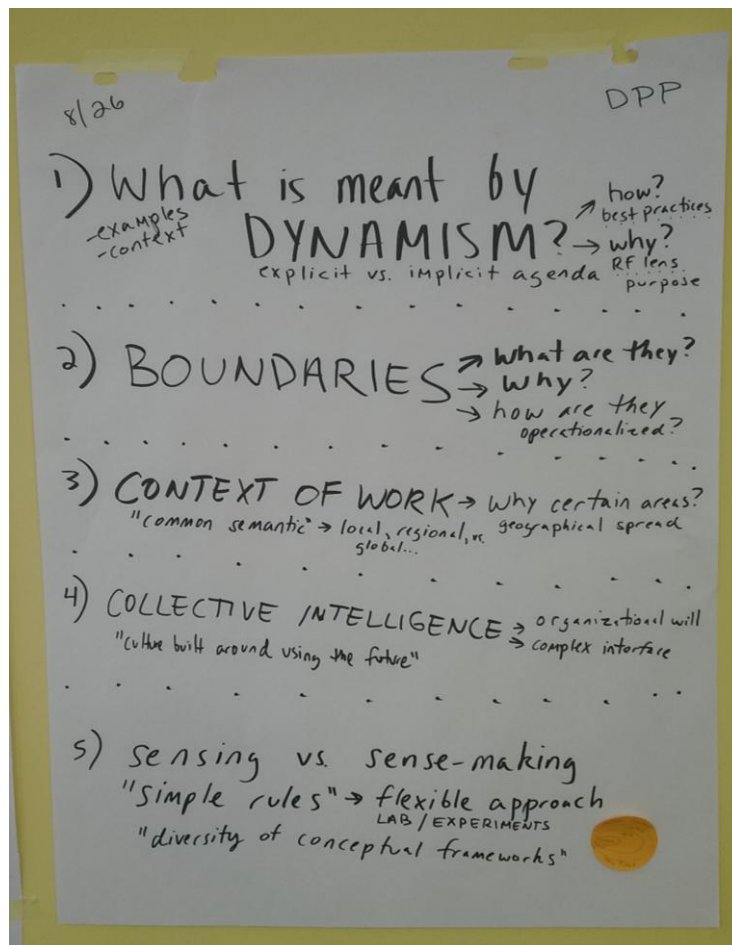 8/26
DPP
1) What is meant by
DYNAMISM?
-examples
-context
→ how?
best practices
→ why?
RF lens
purpose
explicit vs. implicit agenda
2) BOUNDARIES
→ What are they?
→ Why?
→ how are they
operationalized?
3) CONTEXT OF WORK → Why certain areas?
"common semantic" → local, regional, vs. geographical spread
global...
4) COLLECTIVE INTELLIGENCE → organizational will
→ complex interface
"culture built around using the future"
5) sensing vs. sense-making
"simple rules" → flexible approach
LAB / EXPERIMENTS
"diversity of conceptual frameworks"